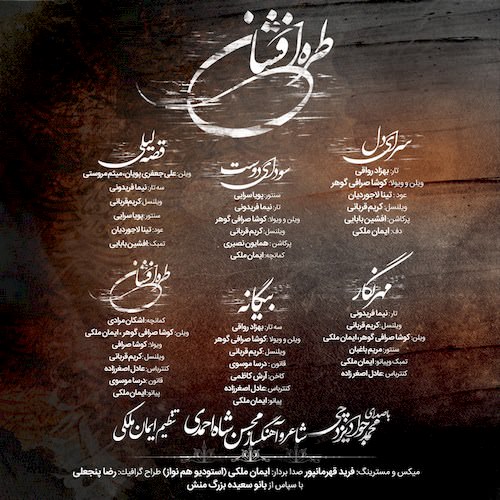 طره افشان
سرای دل
تار: بهزاد رواقی
ویلن و ویولا: کوشا صرافی گوهر
عود: تینا لاجوردیان
ویلنسل: کریم قربانی
پرکاشن: افشین بابایی
دف: ایمان ملکی
سودای دوست
سنتور: پویا سرایی
تار: نیما فریدونی
ویلن و ویولا: کوشا صرافی گوهر
ویلنسل: کریم قربانی
پرکاشن: همایون نصیری
کمانچه: ایمان ملکی
قصه لیلی
ویلن: علی جعفری پویان، میثم مروستی
سه تار: نیما فریدونی
ویلنسل: کریم قربانی
سنتور: پویا سرایی
عود: تینا لاجوردیان
تمبک: افشین بابایی
مهر نگار
تار: نیما فریدونی
ویلنسل: کریم قربانی
ویلن: کوشا صرافی گوهر، ایمان ملکی
سنتور: مریم باغبان
تمبک و پیانو: ایمان ملکی
کنترباس: عادل اصغرزاده
بیگانه
سه تار: بهزاد رواقی
ویلن و ویولا: کوشا صرافی گوهر
ویلنسل: کریم قربانی
قانون: درسا موسوی
کاخن: آرش کاظمی
کنترباس: عادل اصغرزاده
پیانو: ایمان ملکی
طره افشان
کمانچه: اشکان مرادی
ویلن: کوشا صرافی گوهر، ایمان ملکی
ویولا: کوشا صرافی
ویلنسل: کریم قربانی
قانون: درسا موسوی
کنترباس: عادل اصغرزاده
پیانو: ایمان ملکی
با صدای محمد جواد یزدیچی شاعر و آهنگساز محسن شاه احمدی تنظیم ایمان ملکی
میکس و مسترینگ: فرید قهرمانپور صدا بردار: ایمان ملکی (استودیو هم نواز) طراح گرافیک: رضا پنجعلی
با سپاس از بانو سعیده بزرگ منش